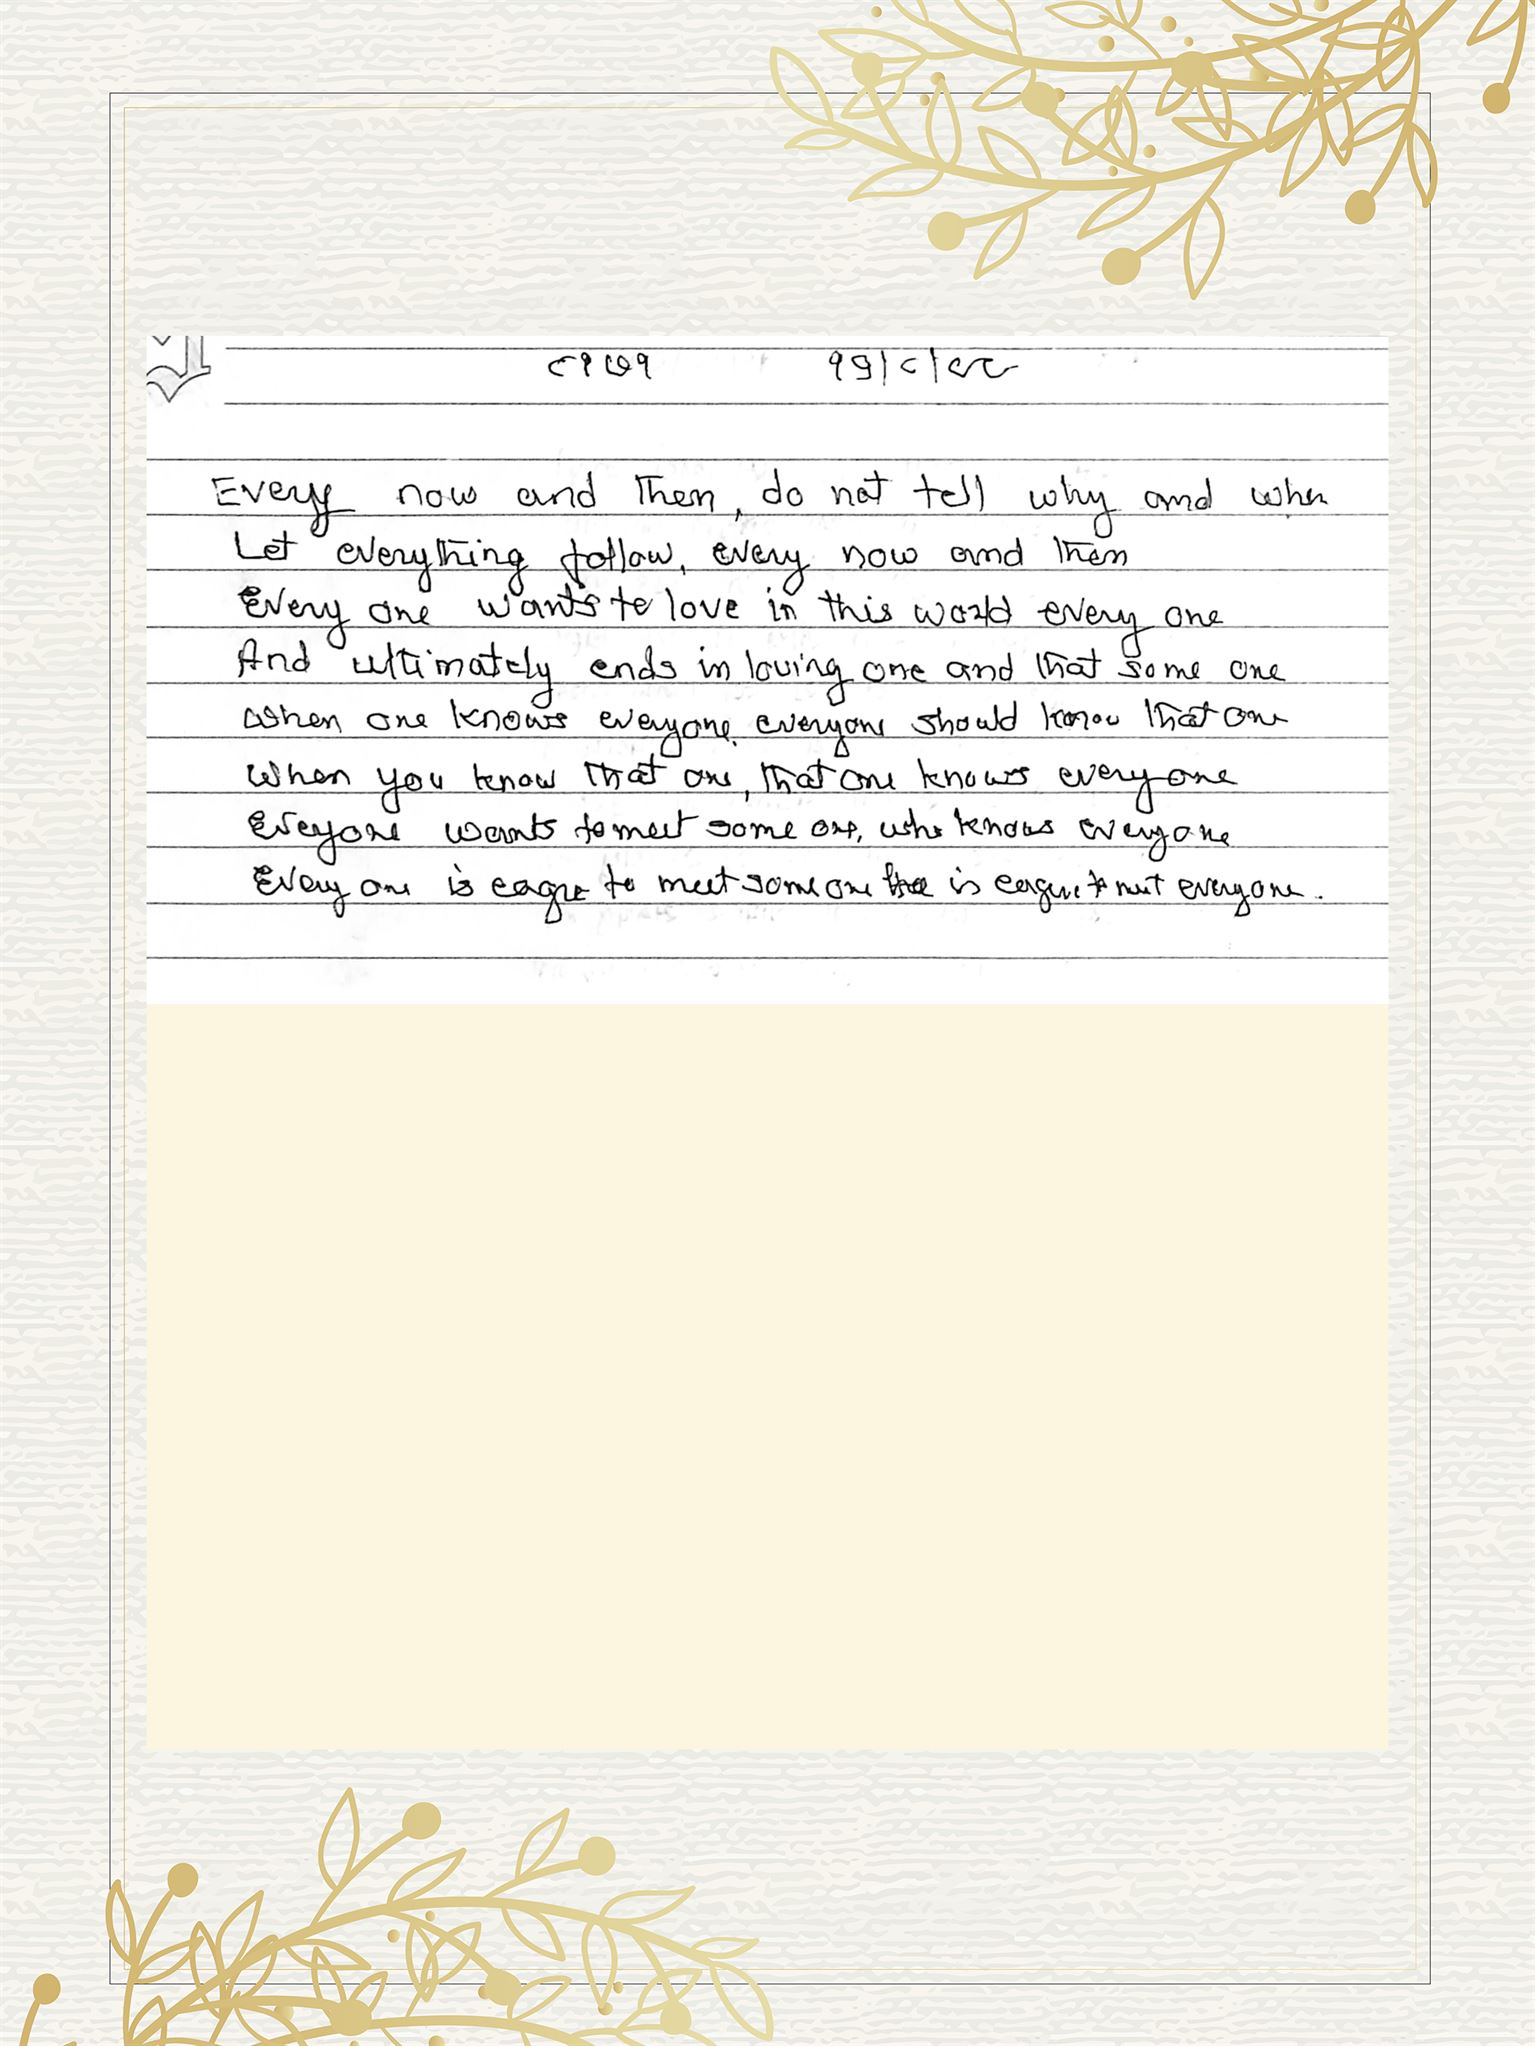 Every now and then, do not tell why and when
Let everything follow, every now and then
Every one wants to love in this world every one
And ultimately ends in loving one and that some one
When one knows everyone, everyone should know that one
When you know that one, that one knows everyone
Eveyone wants to meet some one, who knows everyone
Every one is eagre to meet some one is eagre to meet everyone.